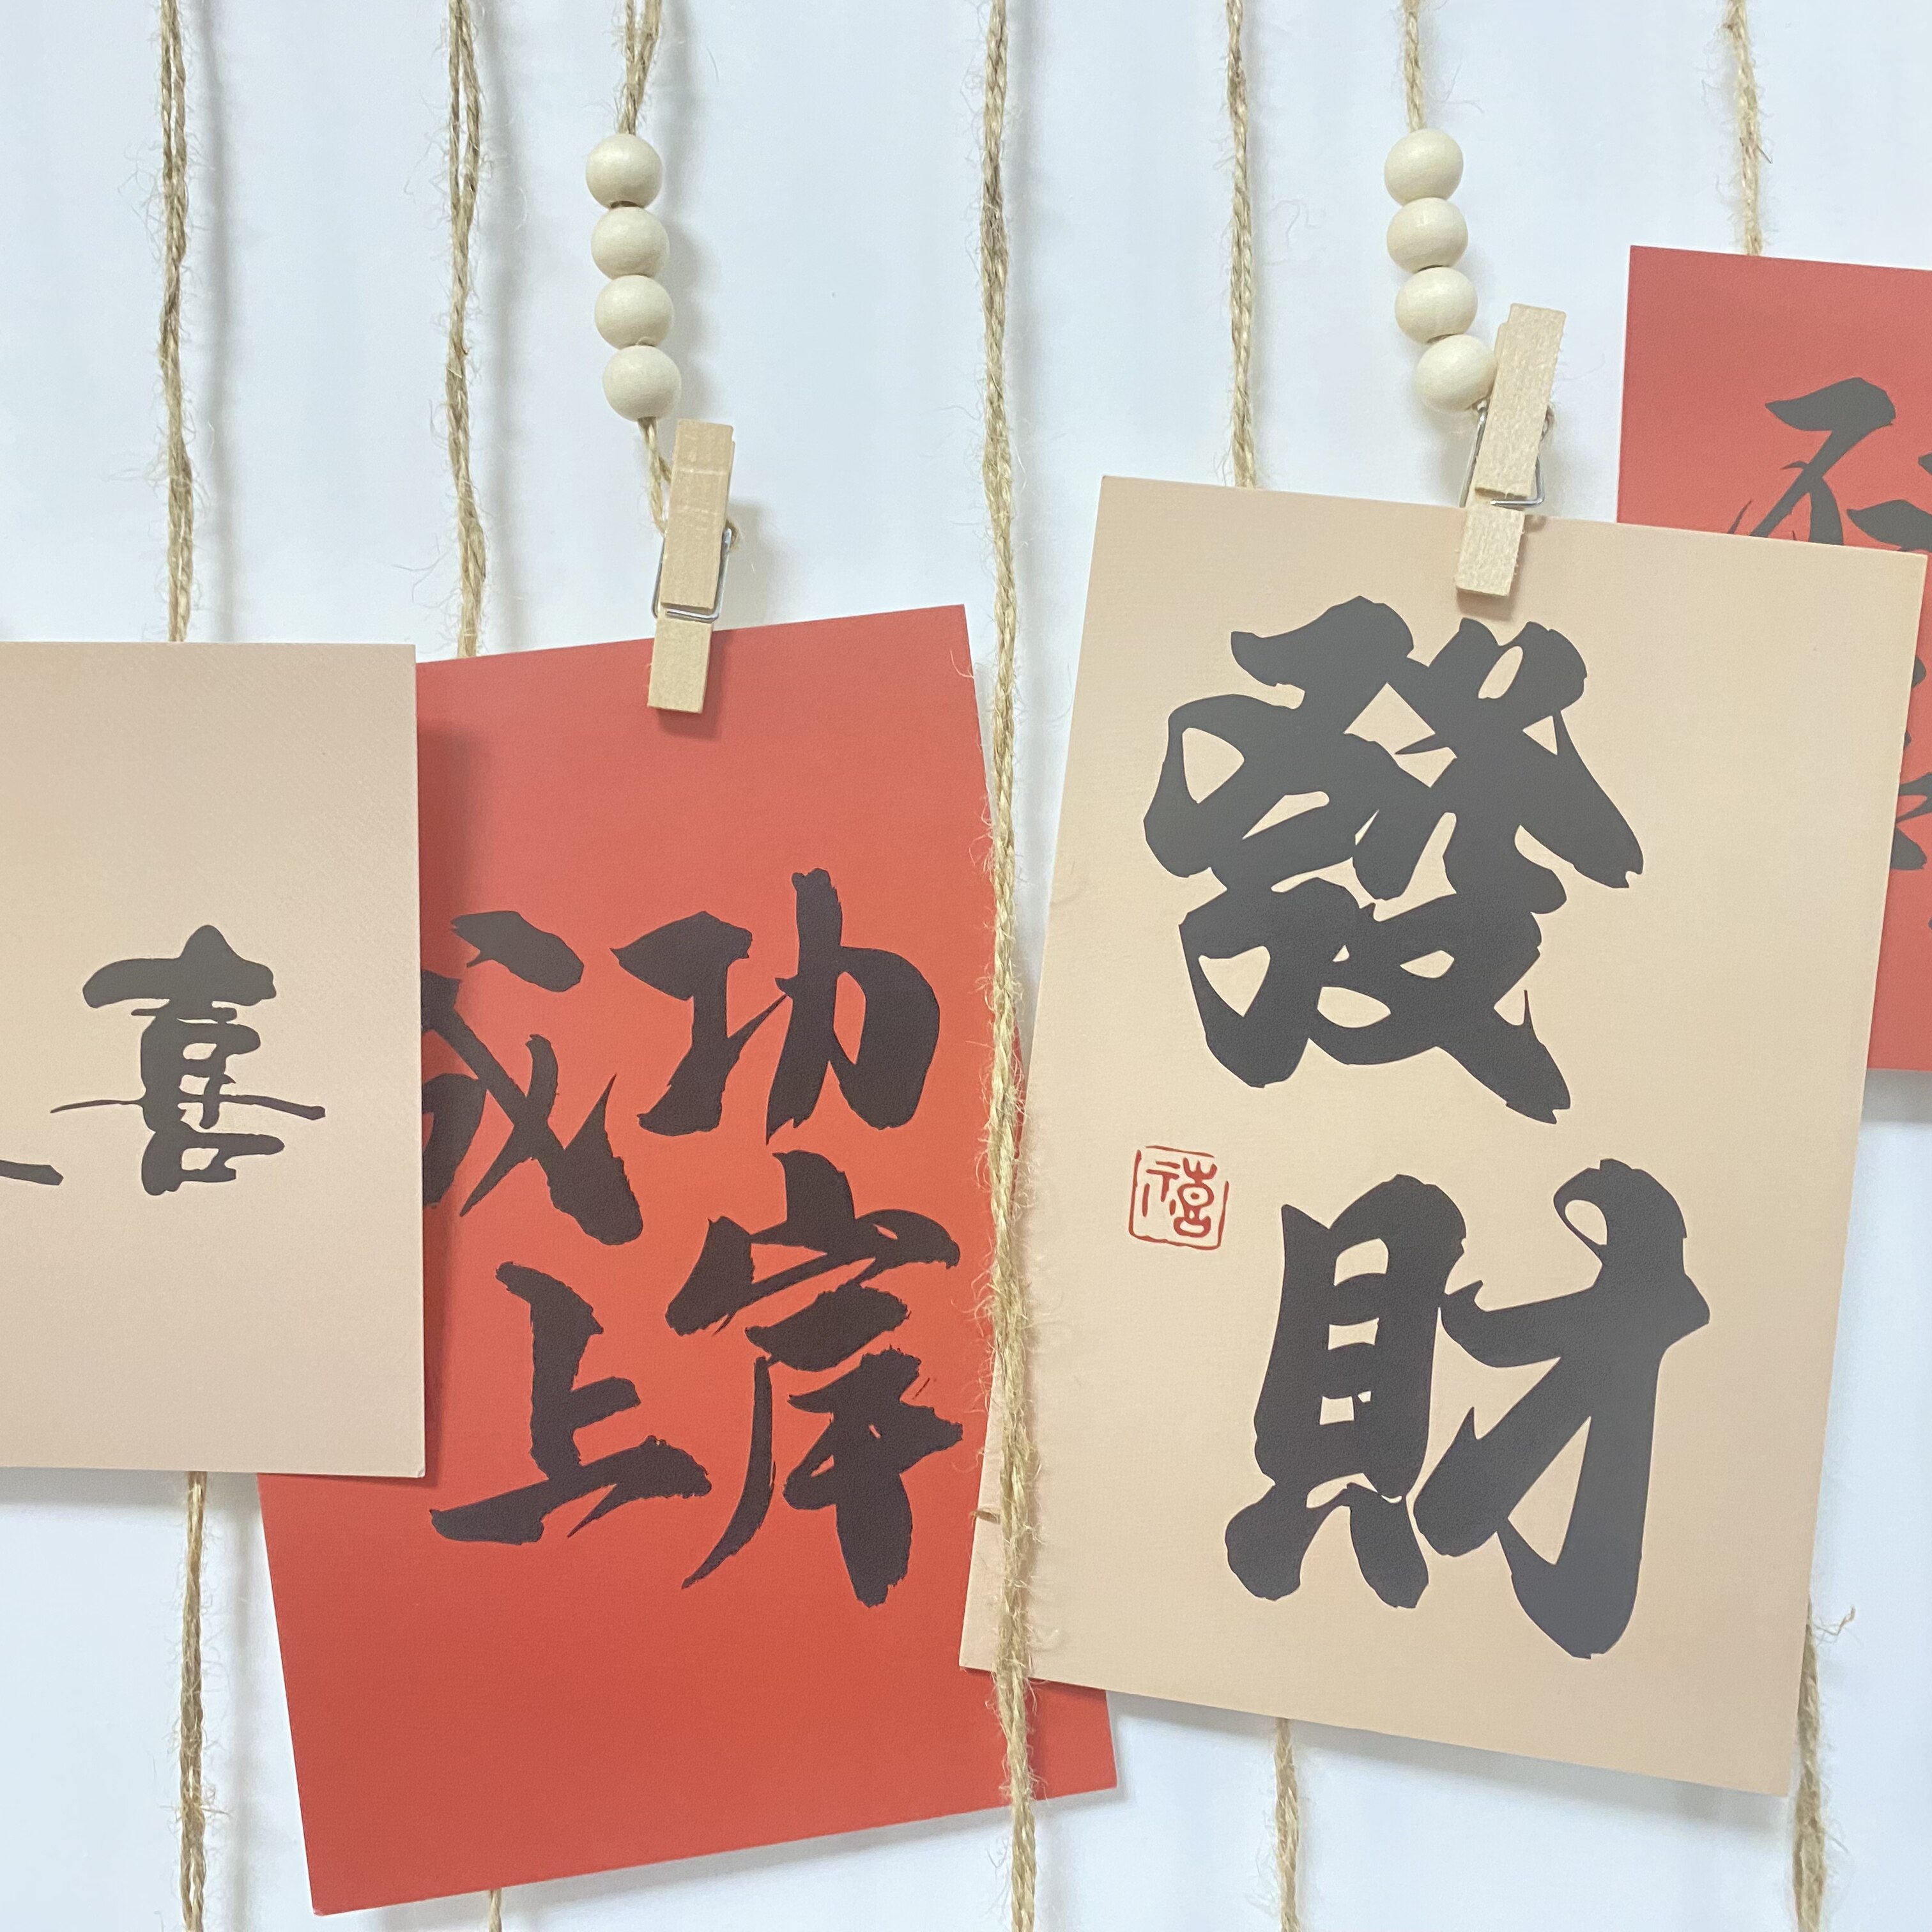 喜
成功
上岸
發
財
禧